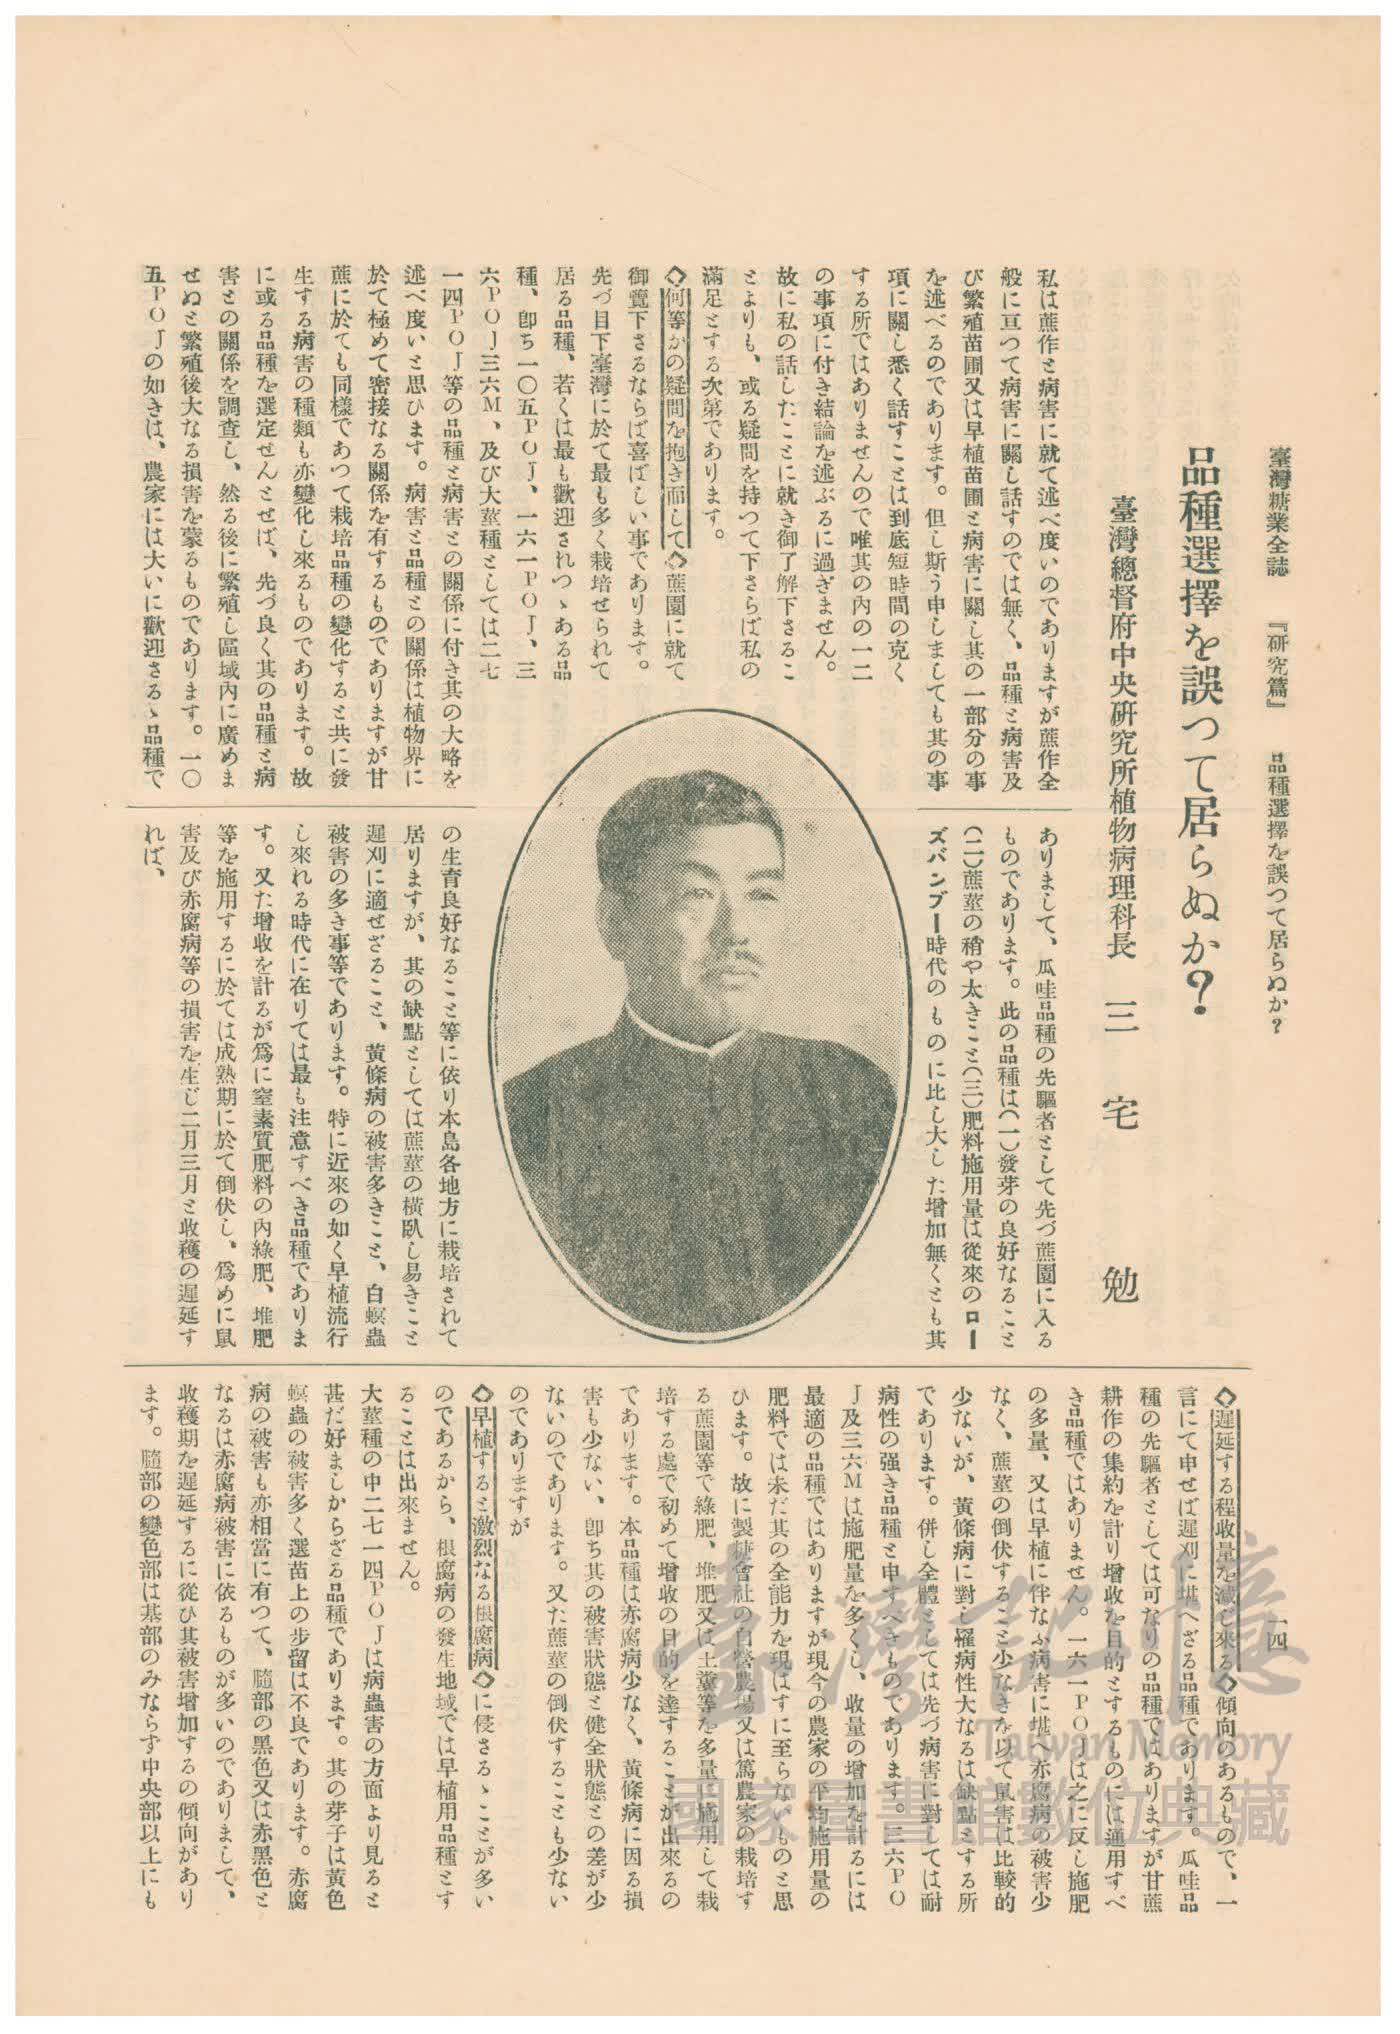 臺灣糖業全誌 『研究篇』 品種選擇を誤つて居らぬか?
一四
品種選擇を誤つて居らぬか?
臺灣總督府中央研究所植物病理科長 三宅 勉
私は蔗作と病害に就て述べ度いのでありますが蔗作全
般に亘つて病害に關し話すのでは無く、品種と病害及
び繁殖苗圃又は早植苗圃と病害に關し其の一部分の事
を述べるのであります。但し斯う申しましても其の事
項に關し悉く話すことは到底短時間の克く
する所ではありませんので唯其の內の一二
の事項に付き結論を述ぶるに過ぎません。
故に私の話したことに就き御了解下さるこ
とよりも、或る疑問を持つて下さらば私の
滿足とする次第であります。
◇何等かの疑問を抱き而して◇蔗園に就て
御覽下さるならば喜ばしい事であります。
先づ目下臺灣に於て最も多く栽培せられて
居る品種、若くは最も歡迎されつゝある品
種、卽ち一〇五POJ、一六一POJ、三
六POJ三六M、及び大莖種としては二七
一四POJ等の品種と病害との關係に付き其の大略を
述べ度いと思ひます。病害と品種との關係は植物界に
於て極めて密接なる關係を有するものでありますが甘
蔗に於ても同樣であつて栽培品種の變化すると共に發
生する病害の種類も亦變化し來るものであります。故
に或る品種を選定せんとせば、先づ良く其の品種と病
害との關係を調査し、然る後に繁殖し區域內に廣めま
せぬと繁殖後大なる損害を蒙るものであります。一〇
五POJの如きは、農家には大いに歡迎さるゝ品種で
ありまして、瓜哇品種の先驅者として先づ蔗園に入る
ものであります。此の品種は(一)發芽の良好なること
(二)蔗莖の稍や太きこと(三)肥料施用量は從來のロー
ズバンブー時代のものに比し大した增加無くとも其
の生育良好なること等に依り本島各地方に栽培されて
居りますが、其の缺點としては蔗莖の橫臥し易きこと
遲刈に適せざること、黃條病の被害多きこと、白螟蟲
被害の多き事等であります。特に近來の如く早植流行
し來れる時代に在りては最も注意すべき品種でありま
す。又た增收を計るが爲に窒素質肥料の內綠肥、堆肥
等を施用するに於ては成熟期に於て倒伏し、爲めに鼠
害及び赤腐病等の損害を生じ二月三月と收穫の遲延す
れば、
◇遲延する程收量を減じ來る◇傾向のあるもので、一
言にて申せば遲刈に堪へざる品種であります。瓜哇品
種の先驅者としては可なりの品種ではありますが甘蔗
耕作の集約を計り增收を目的とするものには適用すべ
き品種ではありません。一六一POJは之に反し施肥
の多量、又は早植に伴なふ病害に堪へ赤腐病の被害少
なく、蔗莖の倒伏すること少なきを以て鼠害は比較的
少ないが、黃條病に對し罹病性大なるは缺點とする所
であります。併し全體としては先づ病害に對しては耐
病性の强き品種と申すべきものであります。三六PO
J及三六Mは施肥量を多くし、收量の增加を計るには
最適の品種ではありますが現今の農家の平均施用量の
肥料では未だ其の全能力を現はすに至らないものと思
ひます。故に製糖會社の自營農場又は篤農家の栽培す
る蔗園等で綠肥、堆肥又は土糞等を多量に施用して栽
培する處で初めて增收の目的を達することが出來るの
であります。本品種は赤腐病少なく、黃條病に因る損
害も少ない、卽ち其の被害狀態と健全狀態との差が少
ないのであります。又た蔗莖の倒伏することも少ない
のでありますが
◇早植すると激烈なる根腐病◇に侵さるゝことが多い
のであるから、根腐病の發生地域では早植用品種とす
ることは出來ません。
大莖種の中二七一四POJは病蟲害の方面より見ると
甚だ好ましからざる品種であります。其の芽子は黃色
螟蟲の被害多く選苗上の步留は不良であります。赤腐
病の被害も亦相當に有つて、髓部の黑色又は赤黑色と
なるは赤腐病被害に依るものが多いのでありまして、
收穫期を遲延するに從ひ其被害增加するの傾向があり
ます。髓部の變色部は基部のみならず中央部以上にも
臺灣記憶
Taiwan Memory
國家圖書館數位典藏